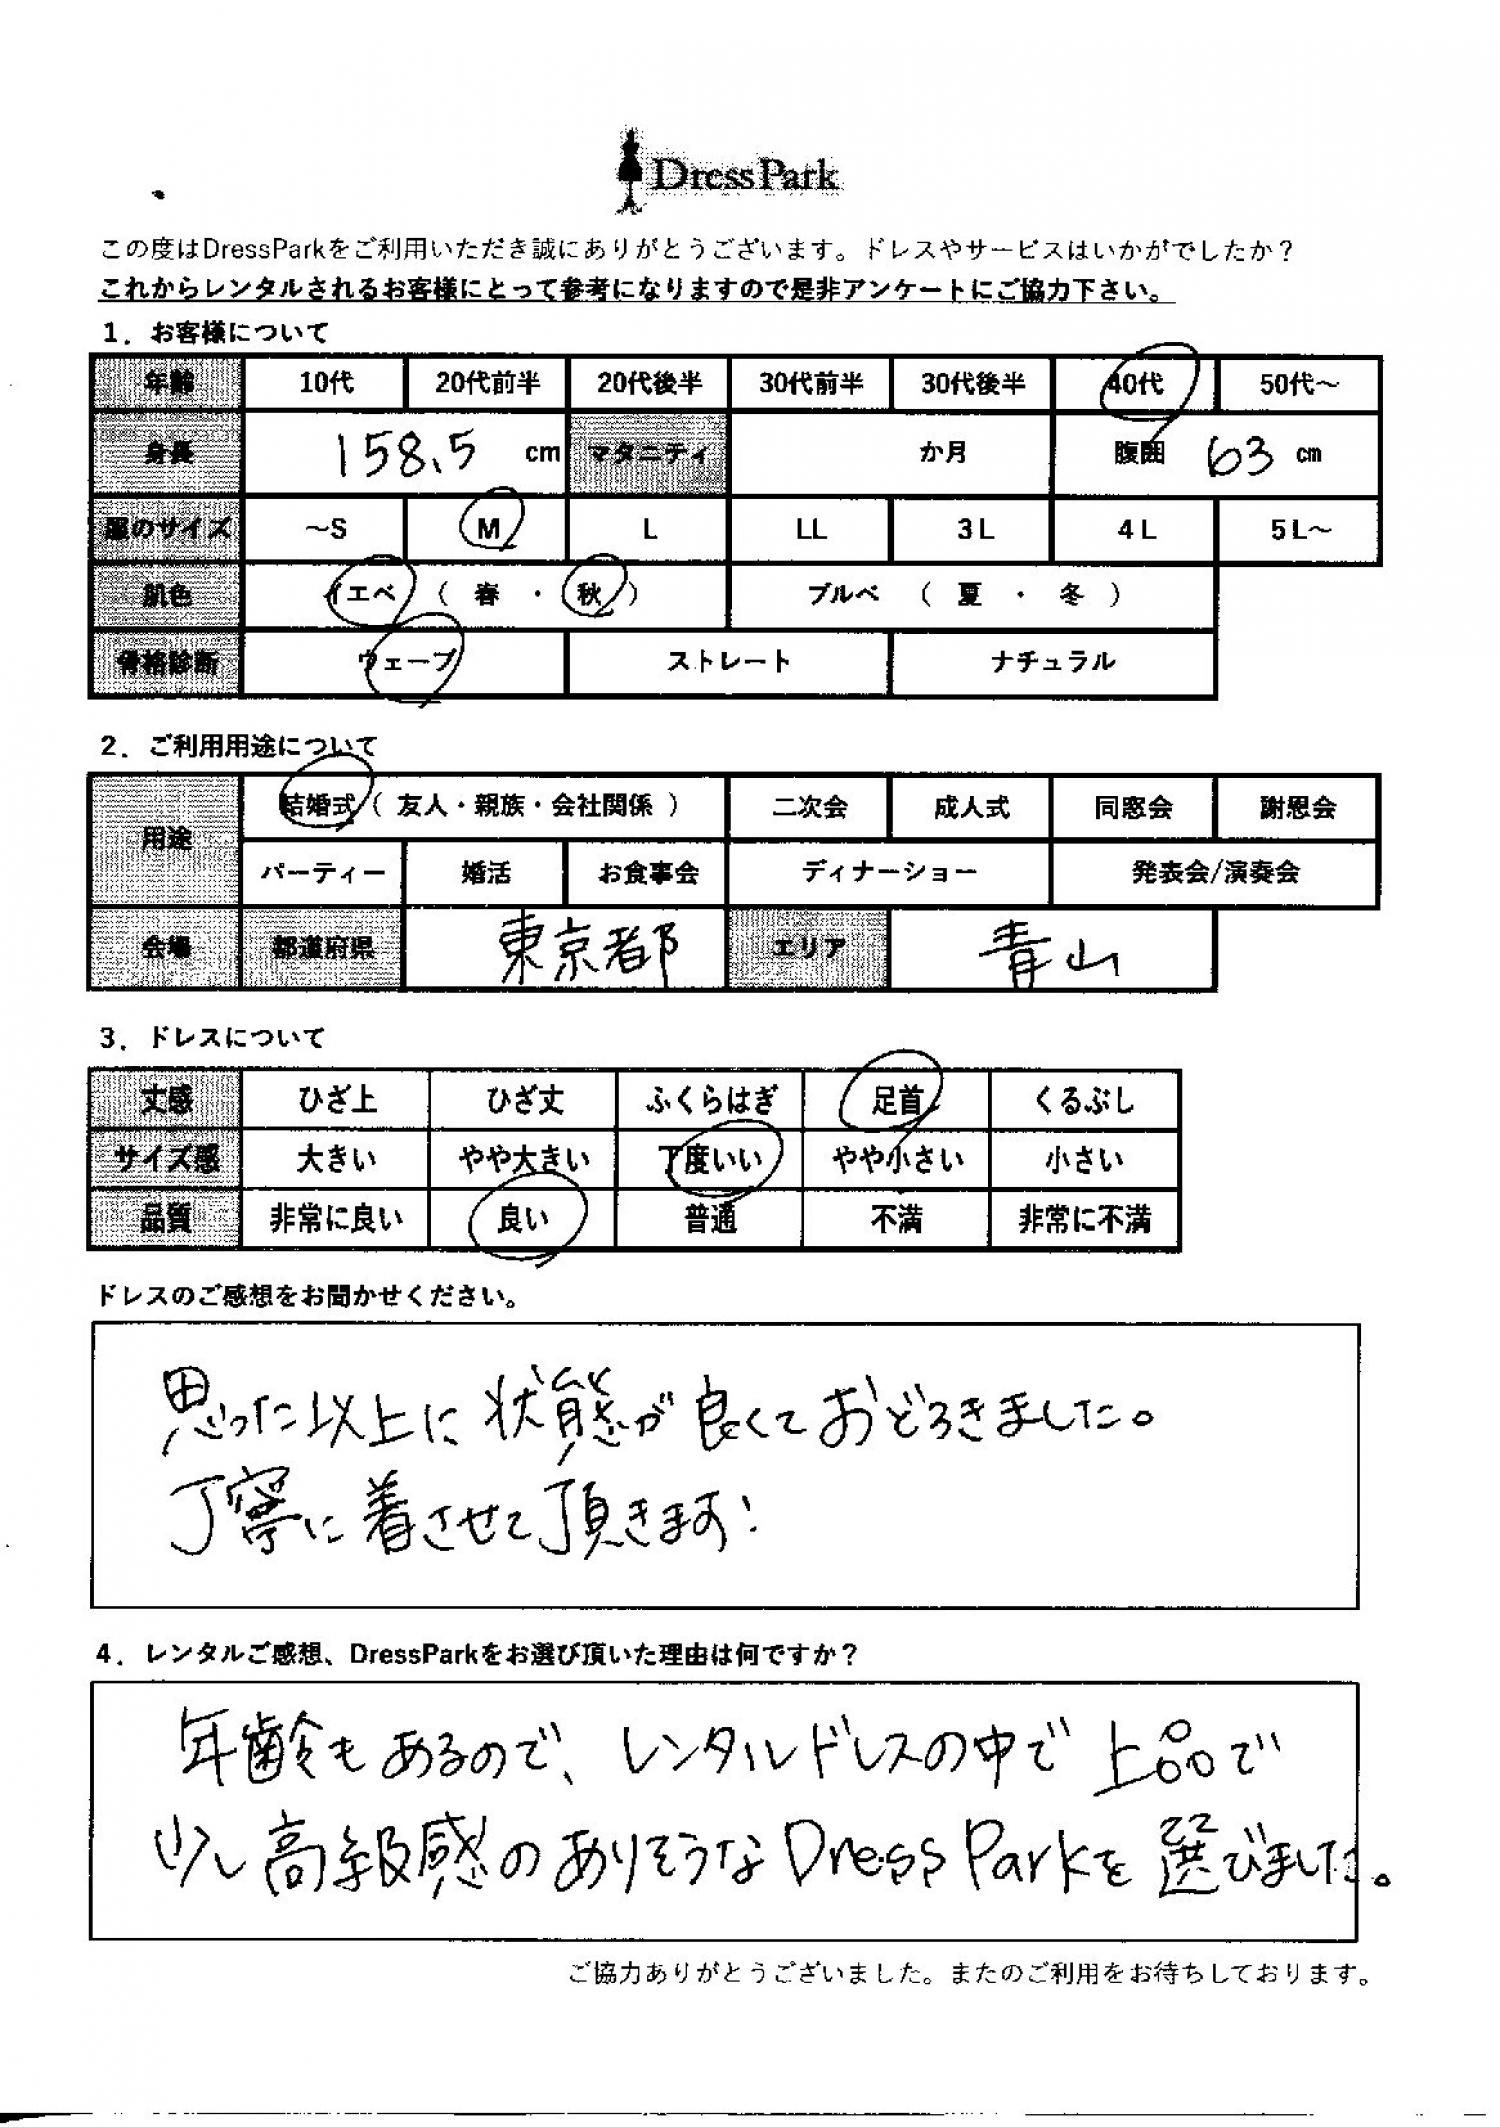 DressPark
この度はDressParkをご利用いただき誠にありがとうございます。ドレスやサービスはいかがでしたか？
これからレンタルされるお客様にとって参考になりますので是非アンケートにご協力下さい。
1．お客様について
年齢 10代 20代前半 20代後半 30代前半 30代後半 40代 50代～
身長 158.5 cm マタニティ か月 腹囲 63 cm
服のサイズ ～S M L LL 3L 4L 5L～
肌色 イエベ （ 春 ・ 秋 ） ブルベ （ 夏 ・ 冬 ）
骨格診断 ウェーブ ストレート ナチュラル
2．ご利用用途について
用途 結婚式（ 友人・親族・会社関係 ） 二次会 成人式 同窓会 謝恩会
パーティー 婚活 お食事会 ディナーショー 発表会/演奏会
会場 都道府県 東京都 エリア 青山
3．ドレスについて
丈感 ひざ上 ひざ丈 ふくらはぎ 足首 くるぶし
サイズ感 大きい やや大きい 丁度いい やや小さい 小さい
品質 非常に良い 良い 普通 不満 非常に不満
ドレスのご感想をお聞かせください。
思った以上に状態が良くておどろきました。
丁寧に着させて頂きます!
4．レンタルご感想、DressParkをお選び頂いた理由は何ですか？
年齢もあるので、レンタルドレスの中で上品で
少し高級感のありそうなDress Parkを選びました。
ご協力ありがとうございました。またのご利用をお待ちしております。